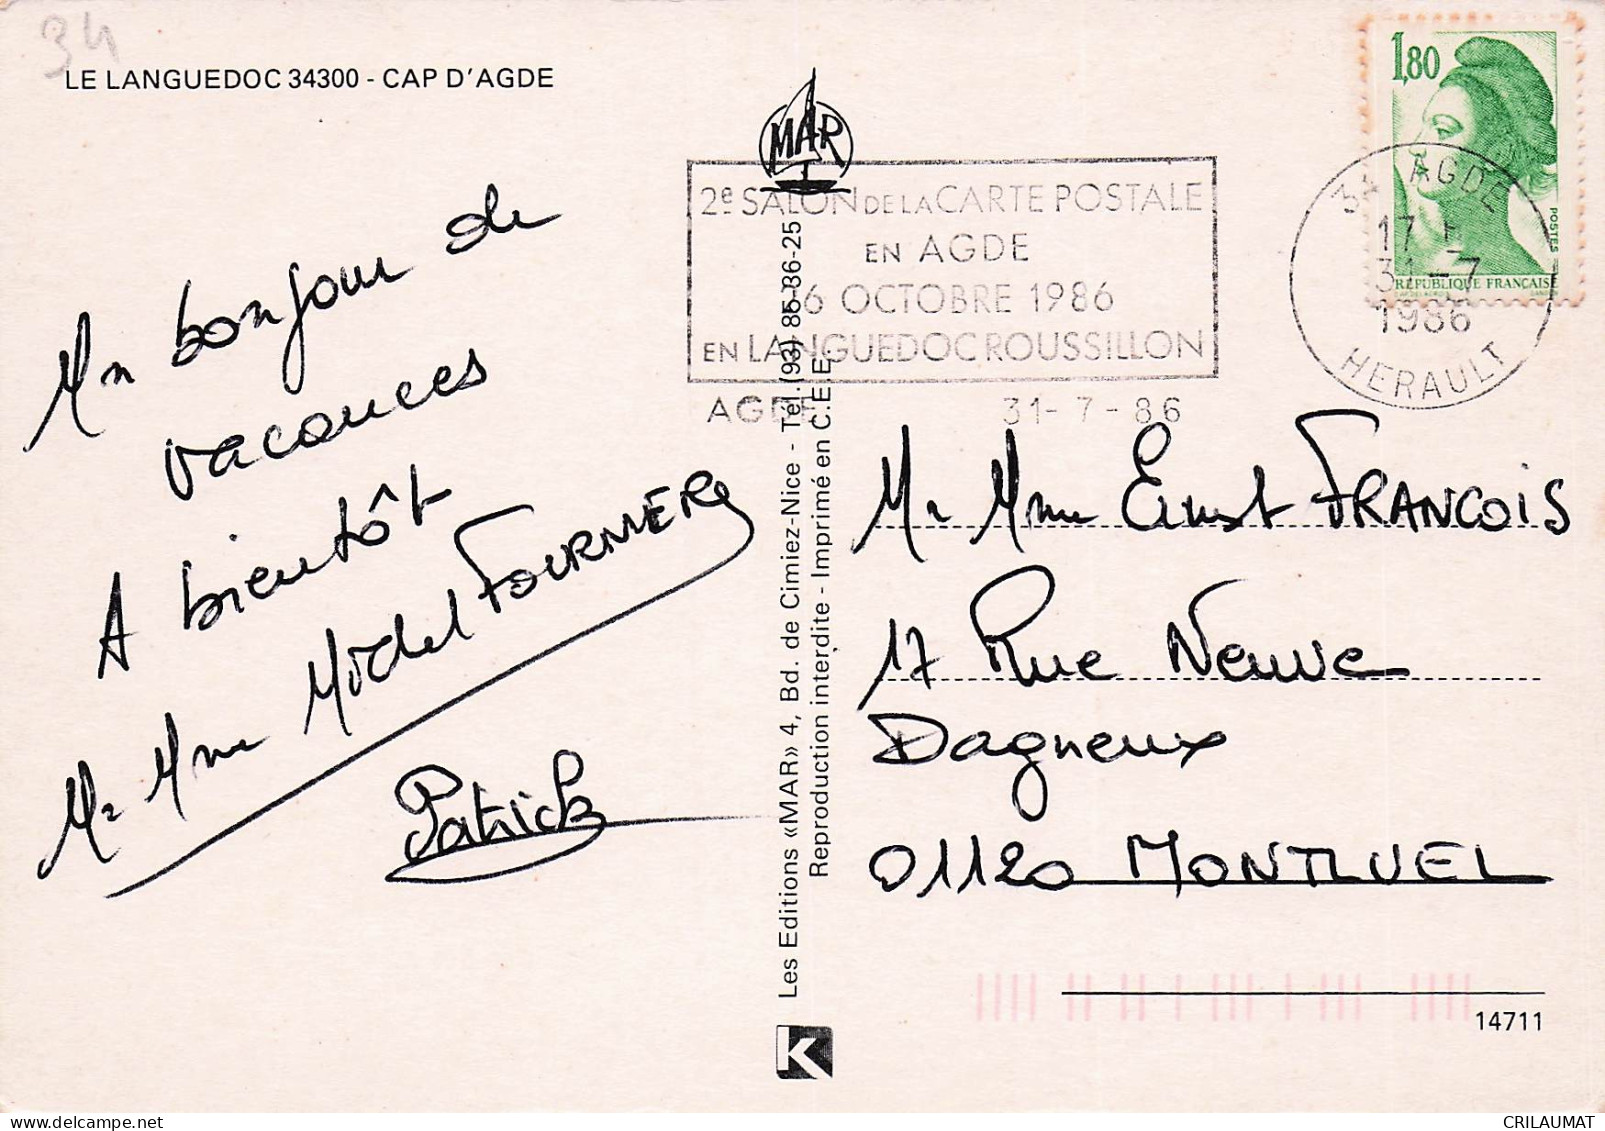 34
LE LANGUEDOC 34300 - CAP D'AGDE
Un bonjour de
vacances
A bientôt
Mr Mme Michel FOURNIER
Patrick
MAR
Les Editions «MAR» 4, Bd. de Cimiez-Nice - Tél. (93) 85-36-25
Reproduction interdite - Imprimé en C.E.E.
K
2e SALON DE LA CARTE POSTALE
EN AGDE
OCTOBRE 1986
EN LANGUEDOC ROUSSILLON
AGDE 31-7-86
1,80
POSTES
RÉPUBLIQUE FRANÇAISE
34 AGDE
17 H
31-7
1986
HERAULT
Mr Mme Ernst FRANCOIS
17 Rue Neuve
Dagneux
01120 MONTLUEL
14711
CRILAUMAT